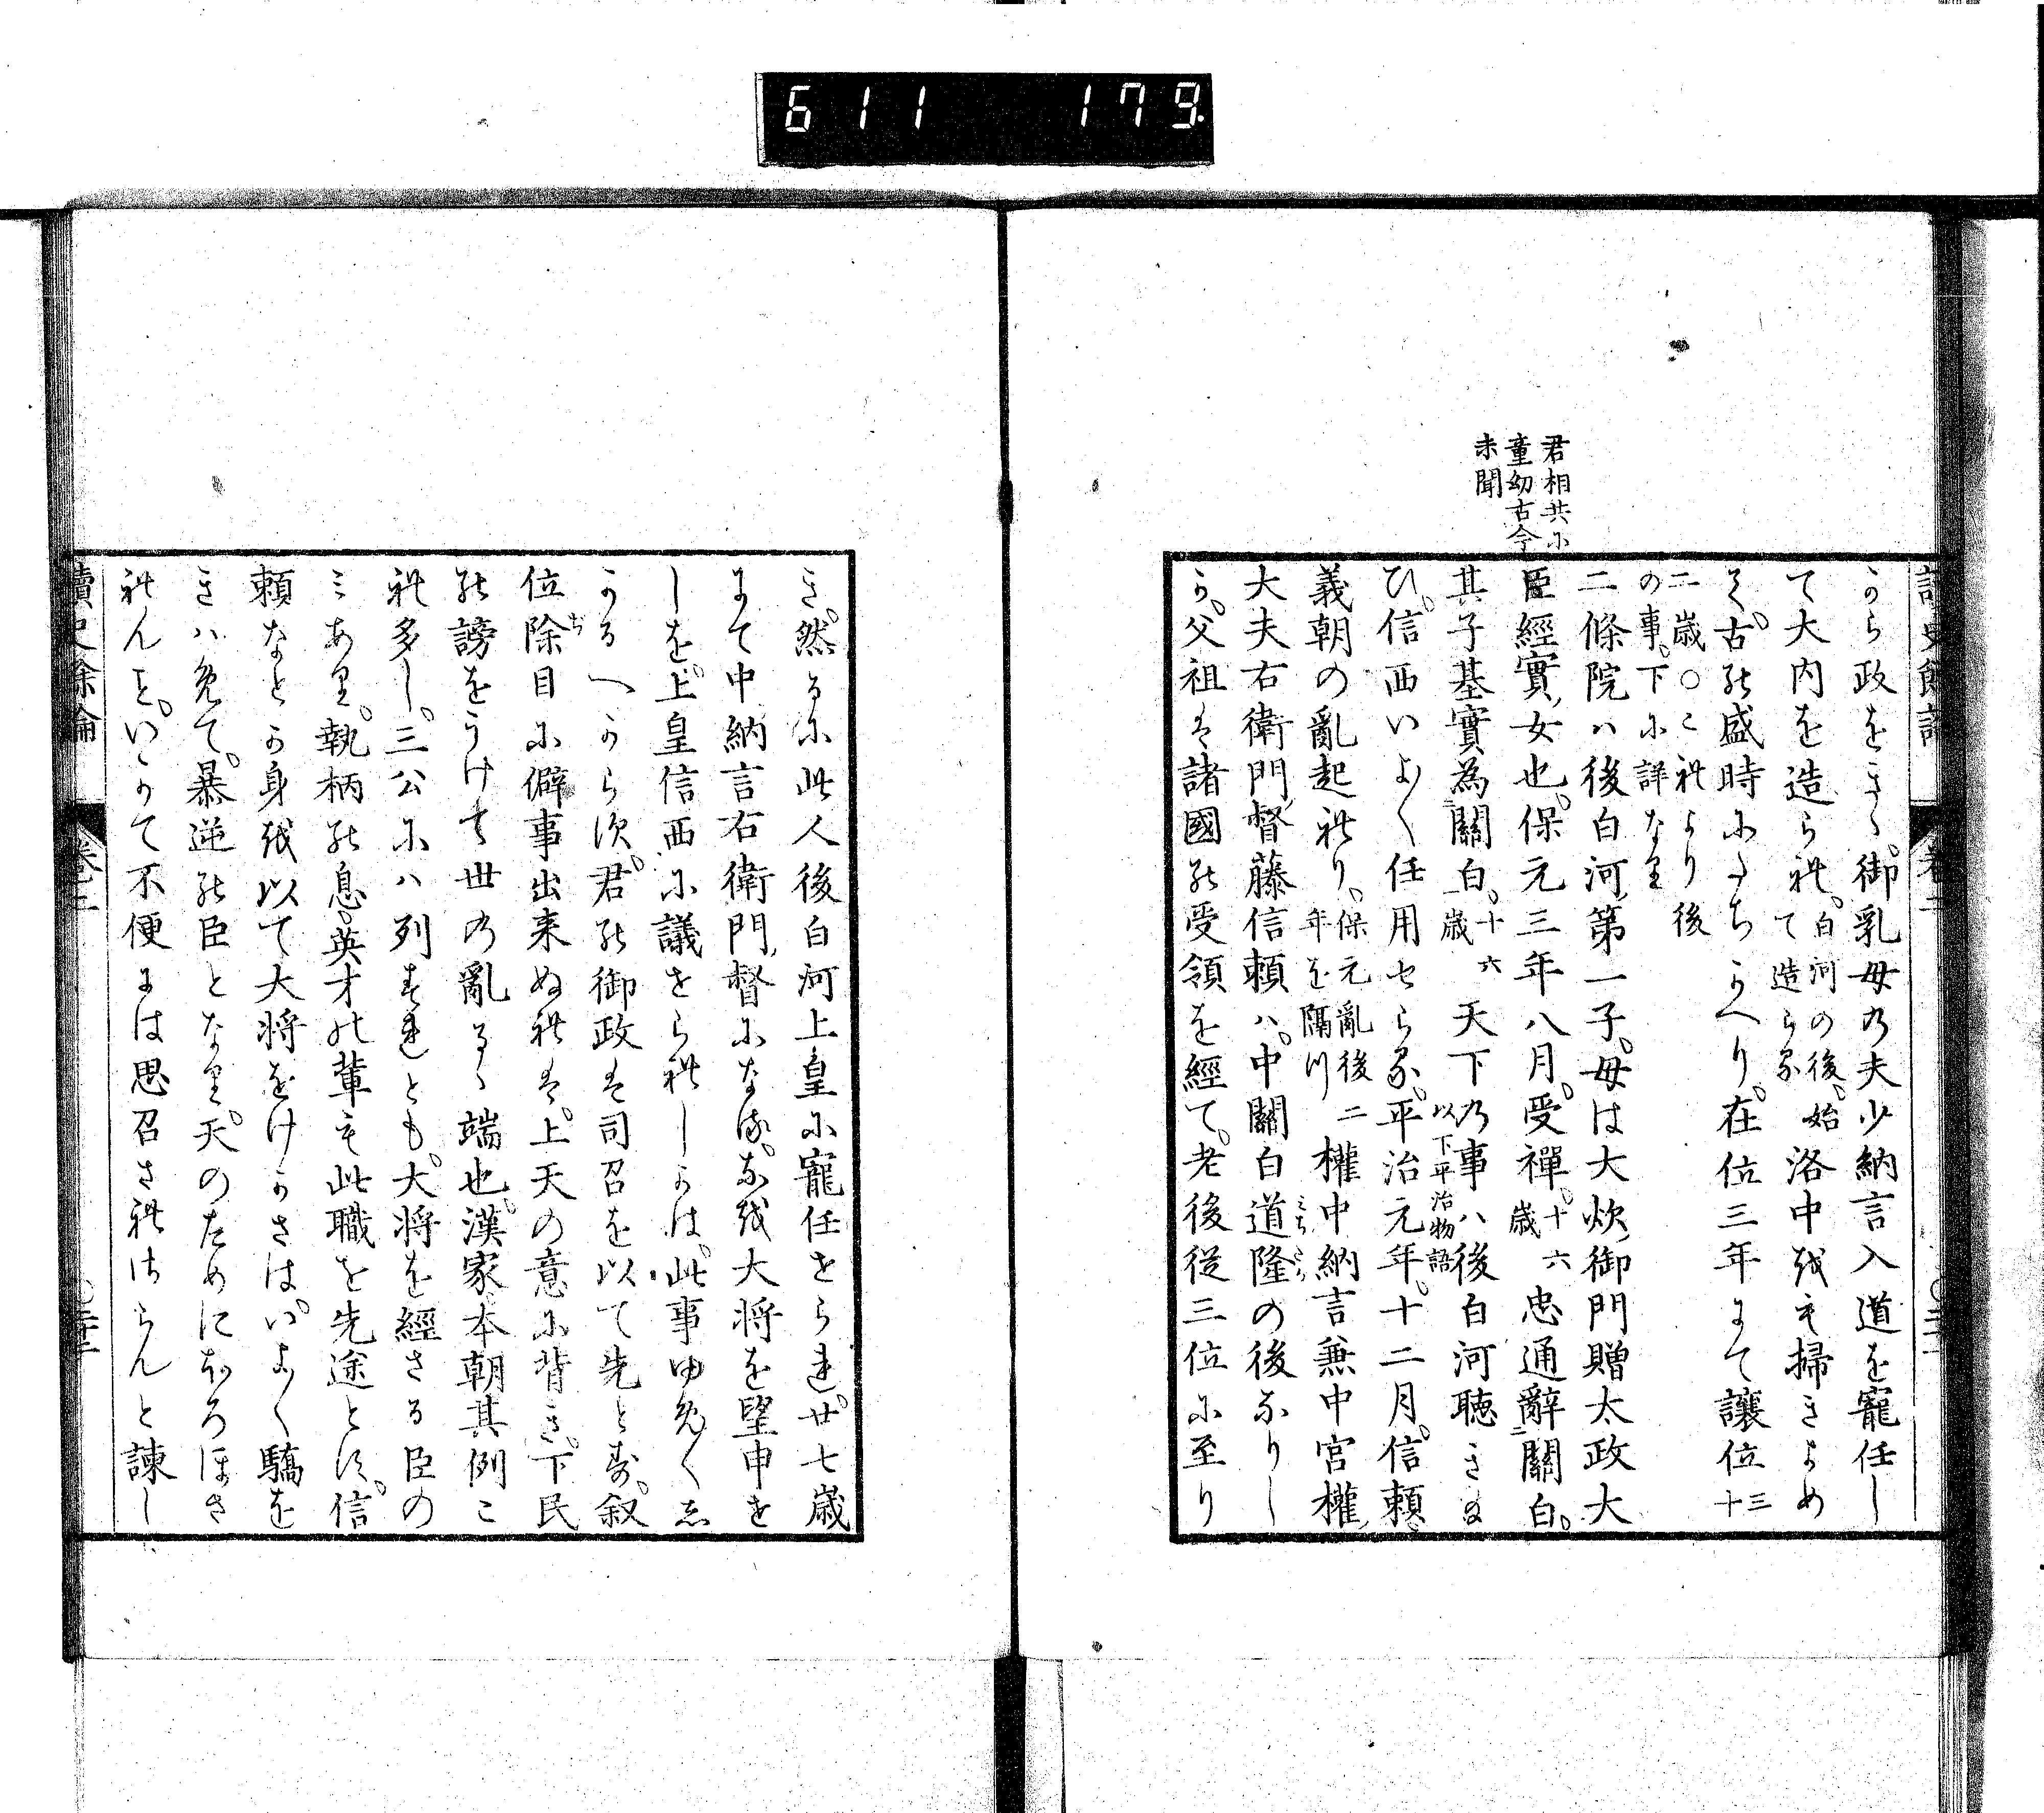 611 179.
讀史餘論 卷二
君相共に
童幼古今
未聞
から政をきく。御乳母の夫少納言入道を寵任し
て大内を造られ。白河の後。始て造らる 洛中をも掃きよめ
て。古の盛時にたちかへり。在位三年にて讓位三十
二歳〇これより後
の事。下に詳なり
二條院ハ後白河第一子。母は大炊御門贈太政大
臣經實女也。保元三年八月。受禪。十六歳 忠通辭關白。
其子基實為關白。十六歳 天下の事ハ後白河聴き給
ひ。信西いよ〱任用せらる。以下平治物語 平治元年。十二月。信頼
義朝の亂起れり。保元亂後二年を隔つ 權中納言兼中宮權
大夫右衛門督藤信頼ハ。中關白道隆みちたかの後なりし
か。父祖は諸國の受領を經て。老後從三位に至り
き。然るに此人後白河上皇に寵任せられ。廿七歳
にて中納言右衛門督になる。なを大将を望申せ
しを。上皇信西に議せられしかは。此事ゆめ〱し
かるへからす。君の御政は司召を以て先とす。叙
位除ぢ目に僻事出来ぬれは。上天の意に背き。下民
の謗をうけて世の亂るゝ端也。漢家本朝其例こ
れ多し。三公にハ列すれとも。大将を經さる臣の
ミあり。執柄の息。英才の輩も此職を先途とす。信
頼なとか身を以て大将をけかさは。いよ〱驕を
きハめて。暴逆の臣となり。天のためにほろほさ
れんを。いかて不便には思召されさらんと諫し
讀史餘論 卷二